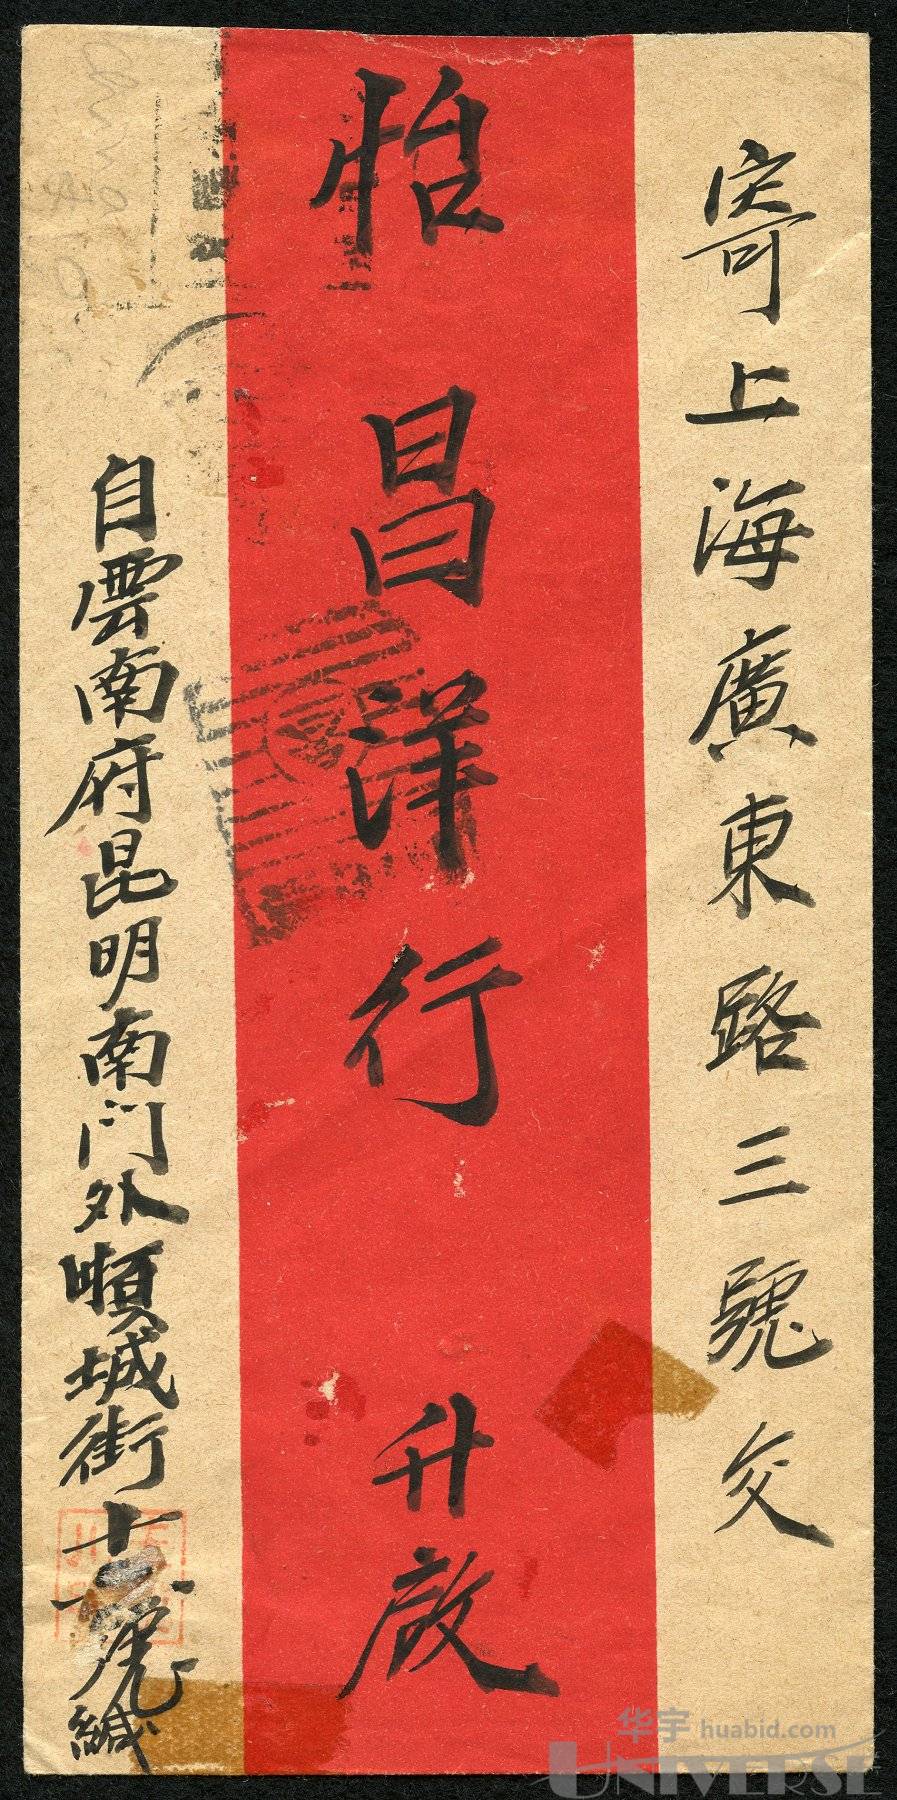 寄上海廣東路三號交
怡昌洋行 升啟
自雲南府昆明南門外順城街十號緘
华宇 huabid.com
UNIVERSE